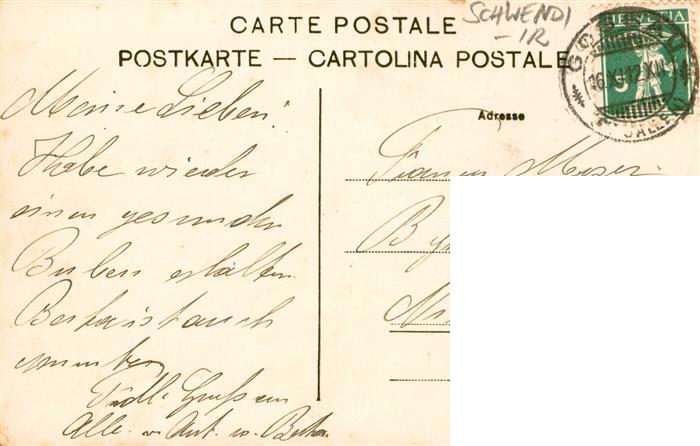 CARTE POSTALE
POSTKARTE — CARTOLINA POSTALE
SCHWENDI
- IR
HELVETIA
5
16.XI.12.XII
(ST. GALLEN)
Adresse
Meine Lieben!
Habe wieder
einen gesunden
Buben erhalten
Berta ist auch
munter
Frdl. Gruss an
Alle. v. Ant. u. Berta.
Moser.